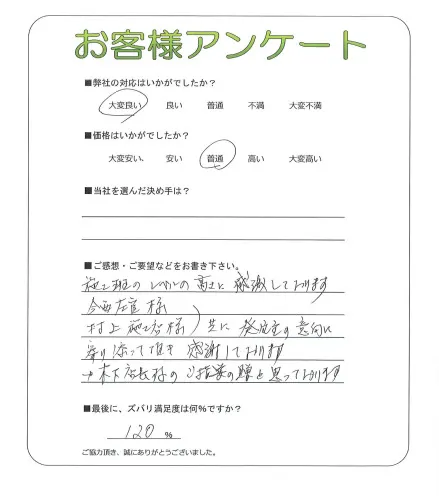 お客様アンケート
■弊社の対応はいかがでしたか?
大変良い 良い 普通 不満 大変不満
■価格はいかがでしたか?
大変安い、 安い 普通 高い 大変高い
■当社を選んだ決め手は?
■ご感想・ご要望などをお書き下さい。
施工班のレベルの高さに感激しております
今西左官様
村上施工店様 ) 共に発注主の意向に
寄り添って頂き 感謝しております
→木下店長様のご指導の賜と思っております
■最後に、ズバリ満足度は何%ですか?
120 %
ご協力頂き、誠にありがとうございました。